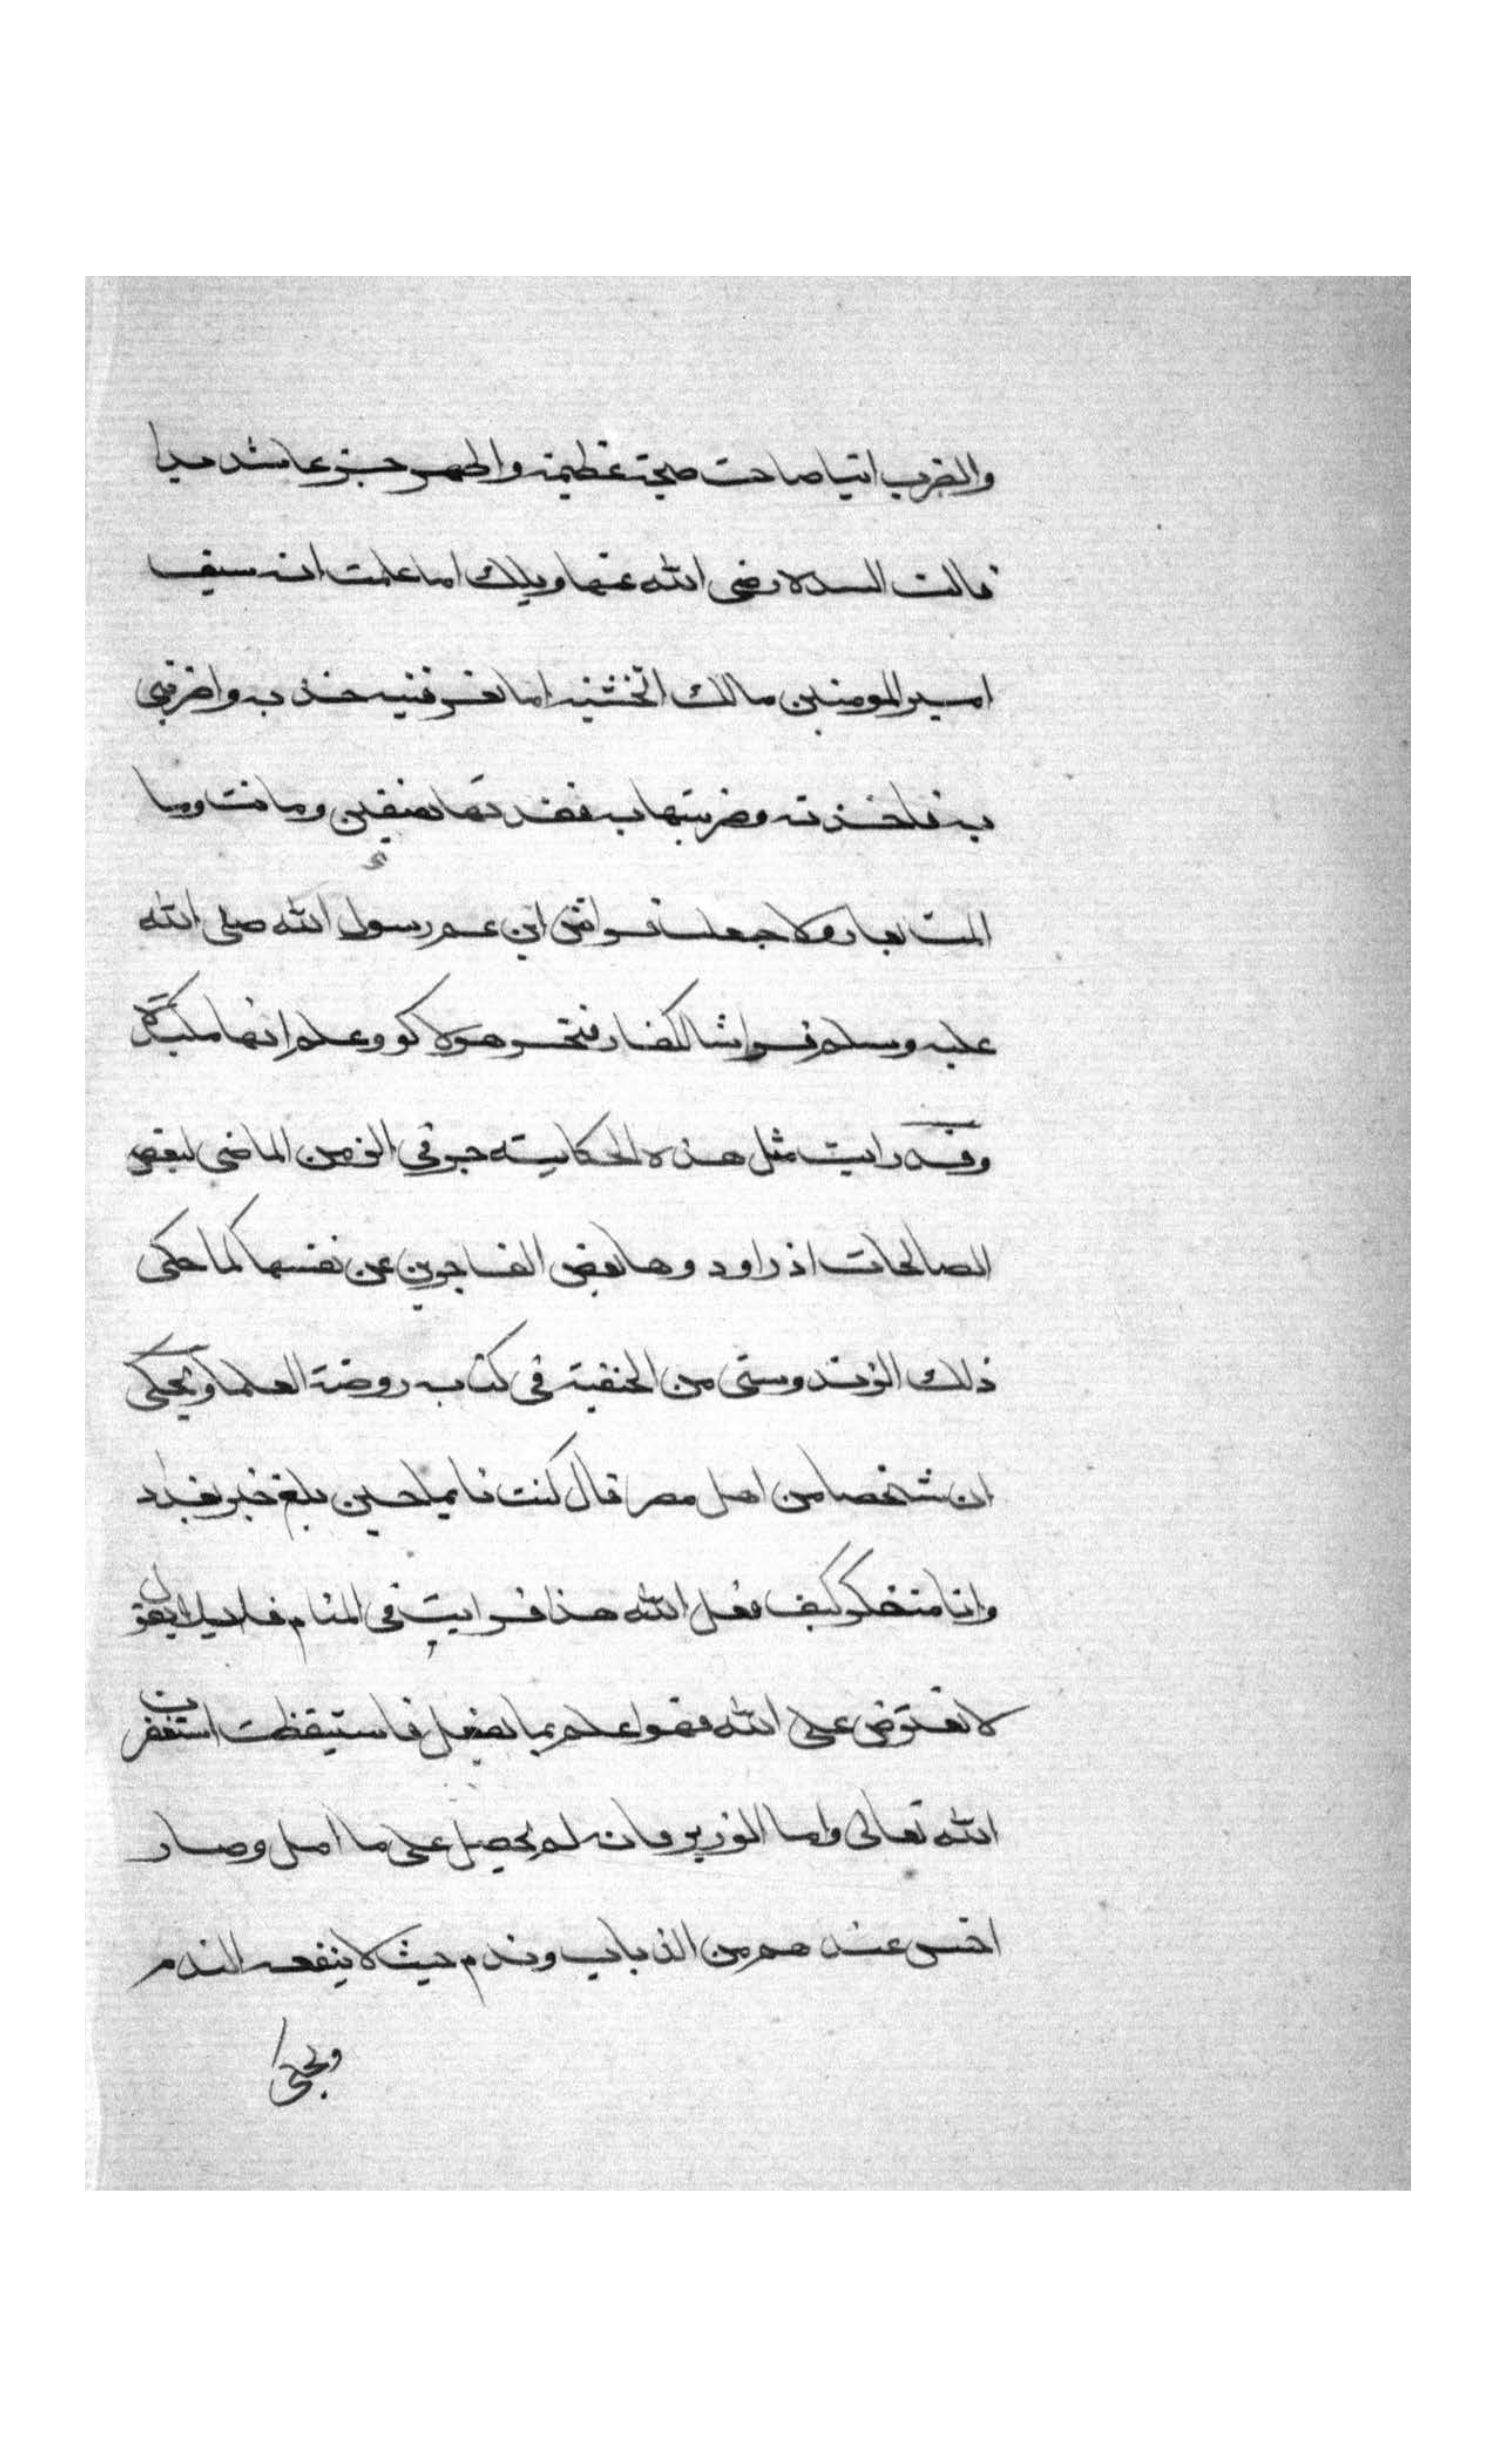 والضرب اتيا صاحت صيحة عظيمة واظهرت جزعا شديدا
فالت السيدة رضى الله عنها ويلك اما علمت انه سيف
امير المومنين مالك اتخشيه اما تعرفنيه خذ به واضربنى
به فاخذته وضربتها به فقدتها نصفين وماتت وما
المت بعار ولا جعلت فراش ابن عم رسول الله صلى الله
عليه وسلم فراشا لكفار فتحسر هولاكو وعلم انها مكيدة
وقد رايت مثل هذه الحكاية جرى فى الزمن الماضى لبعض
الصالحات اذ راودوها بعض الفاجرين عن نفسها كما حكى
ذلك الزندوستى من الحنفية فى كتاب روضة العلما ويحكى
ان شخصا من اهل مصر قال كنت نايما حين بلغ خبر بغداد
وانا متفكر كيف فعل الله هذا فرايت فى المنام قايلا يقول
لا تعترض على الله فهو اعلم بما يفعل فاستيقظت استغفرت
الله تعالى واما الوزير فانه لم يحصل على ما امل وصار
اخس عندهم من الذباب وندم حيث لا ينفعه الندم
ويحكى